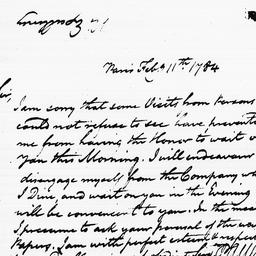 Paris Feb. 11th 1784
Sir,
I am sorry that some Visits from Persons
could not refuse to see have prevente
me from having the Honor to wait o
you this Morning. I will endeavour
disengage myself from the Company w
I Dine, and wait on you in the Evening
will be convenient to you. In the mea
I presume to ask your perusal of the
Papers. I am with perfect esteem & respe